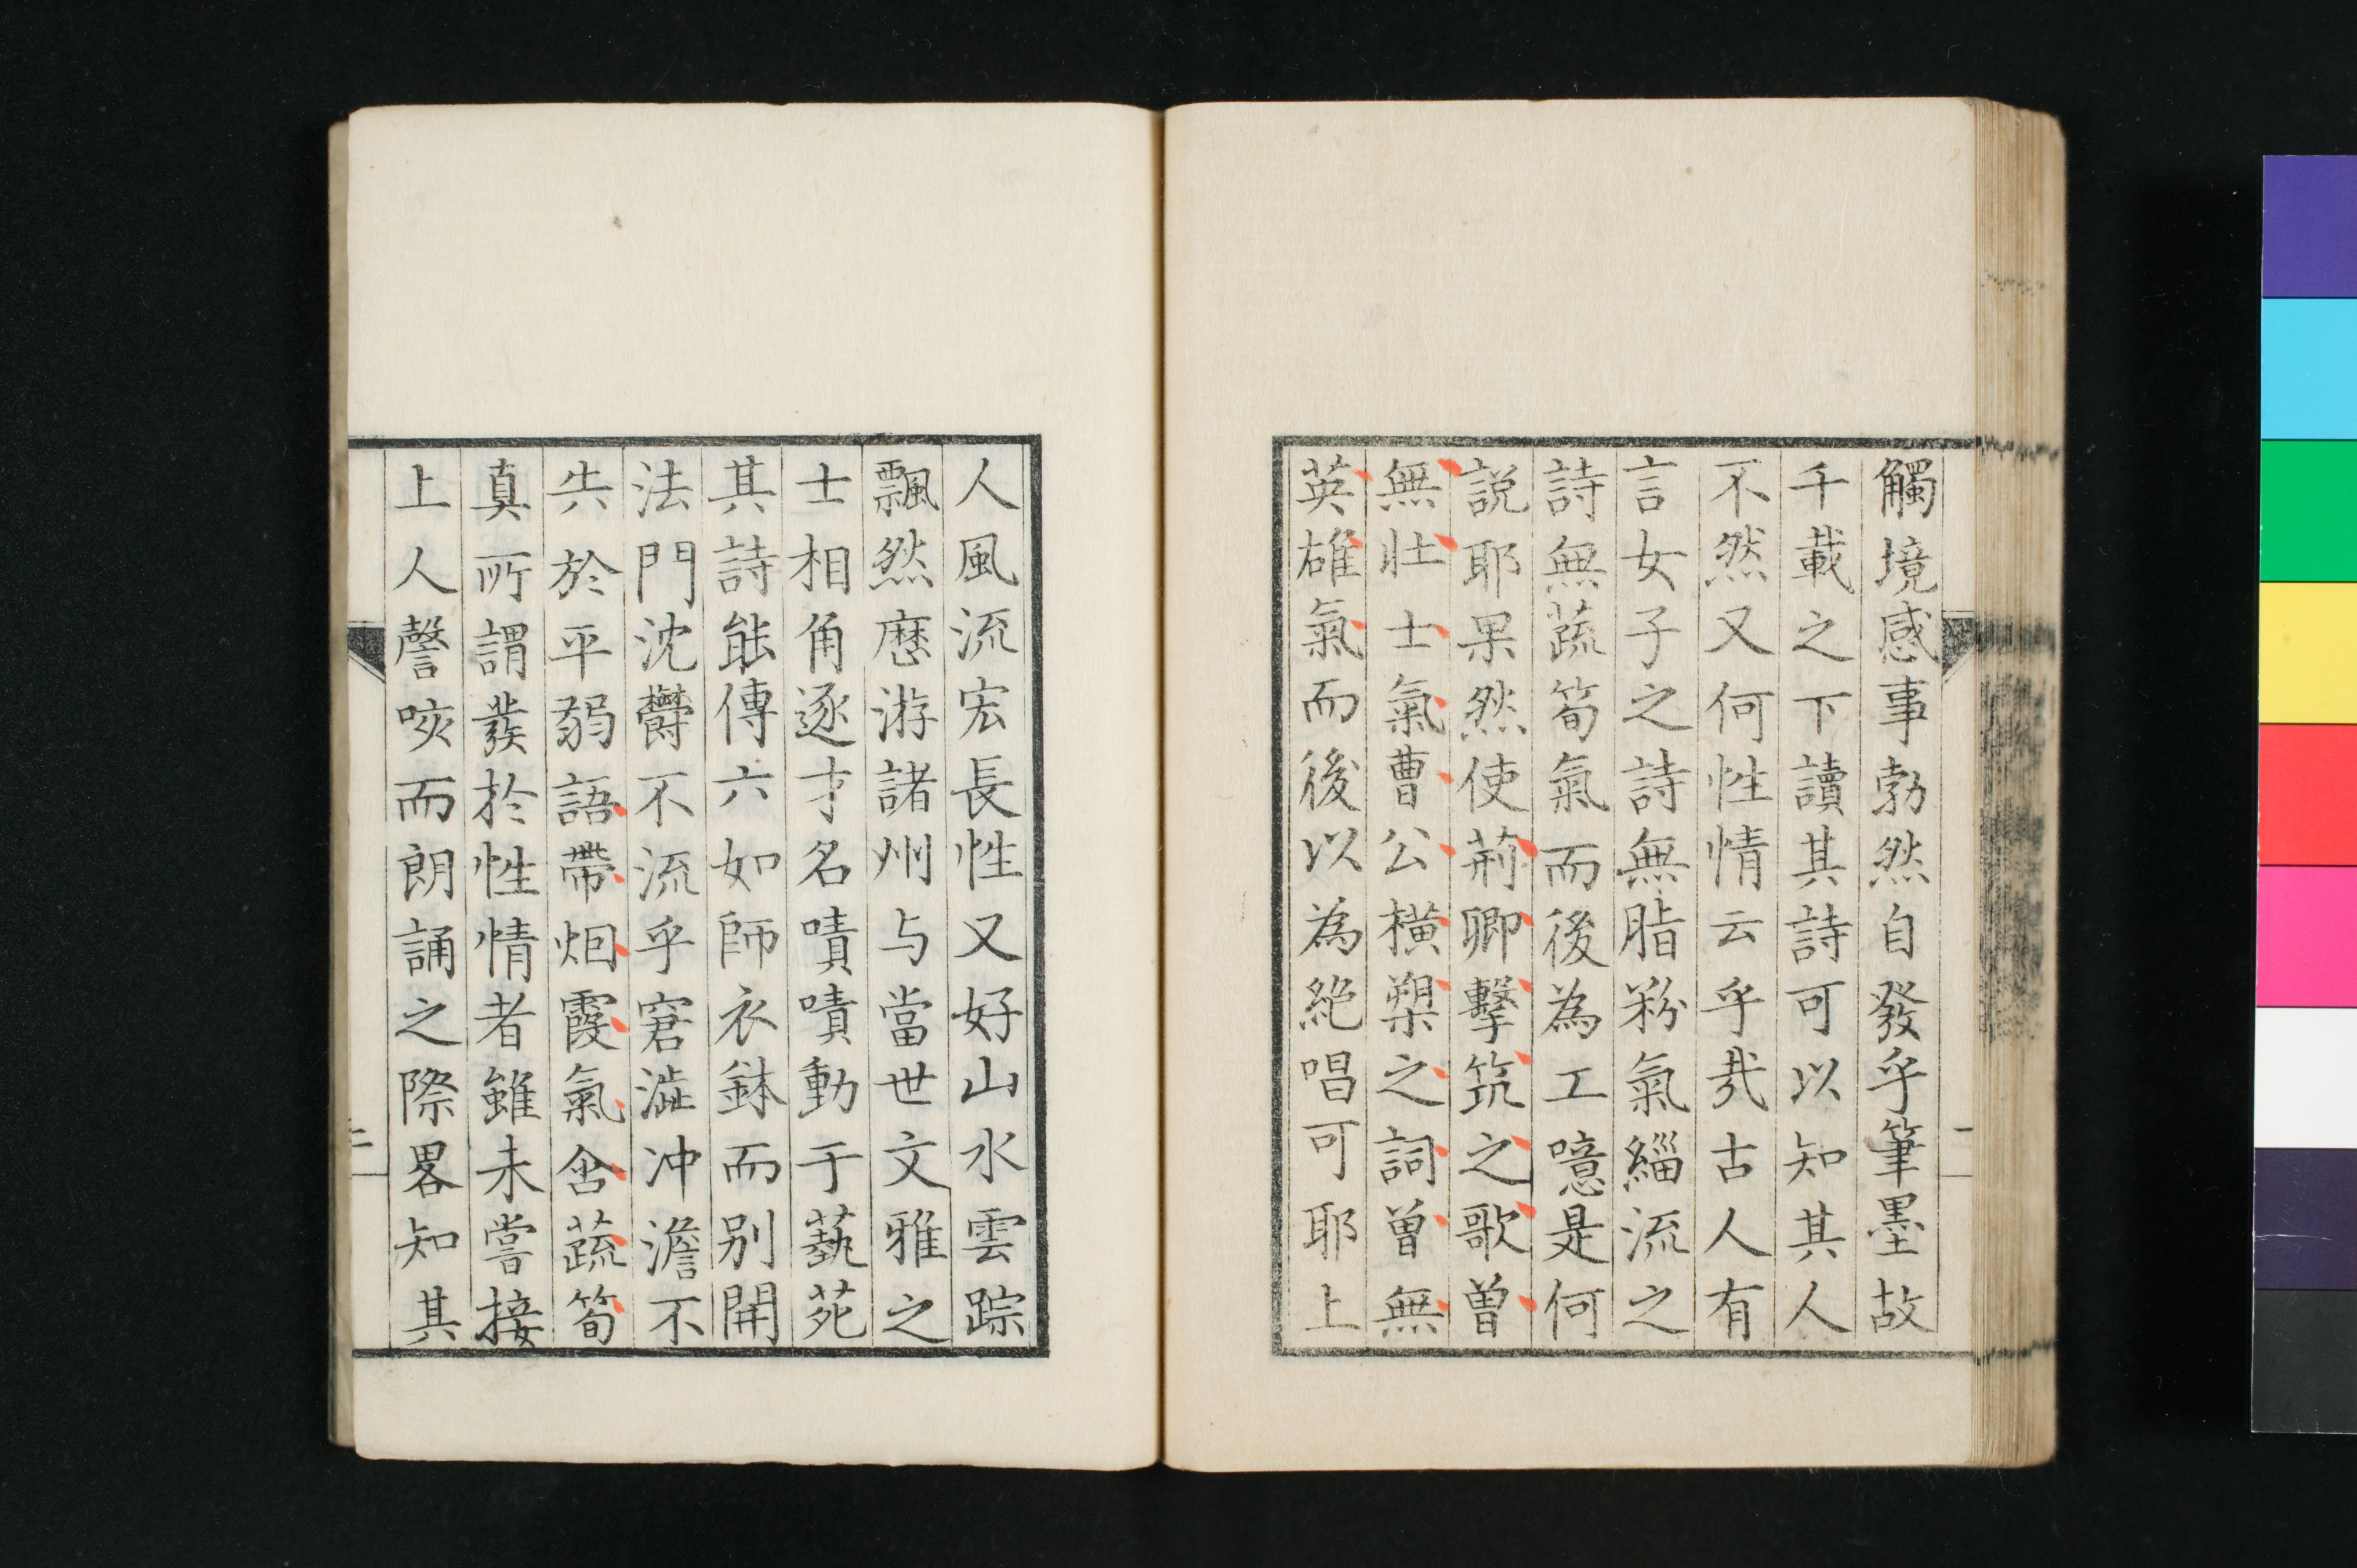 觸境感事勃然自發乎筆墨故
千載之下讀其詩可以知其人
不然又何性情云乎哉古人有
言女子之詩無脂粉氣緇流之
詩無蔬筍氣而後為工噫是何
説耶果然使荊卿擊筑之歌曽
無壯士氣曹公横槊之詞曽無
英雄氣而後以為絶唱可耶上
一
人風流宏長性又好山水雲踪
飄然歷游諸州与當世文雅之
士相角逐才名嘖嘖動于藝苑
其詩能傳六如師衣鉢而别開
法門沈欝不流乎窘澁冲澹不
失於平弱語帶烟霞氣含蔬筍
真所謂發於性情者雖未嘗接
上人謦咳而朗誦之際畧知其
二